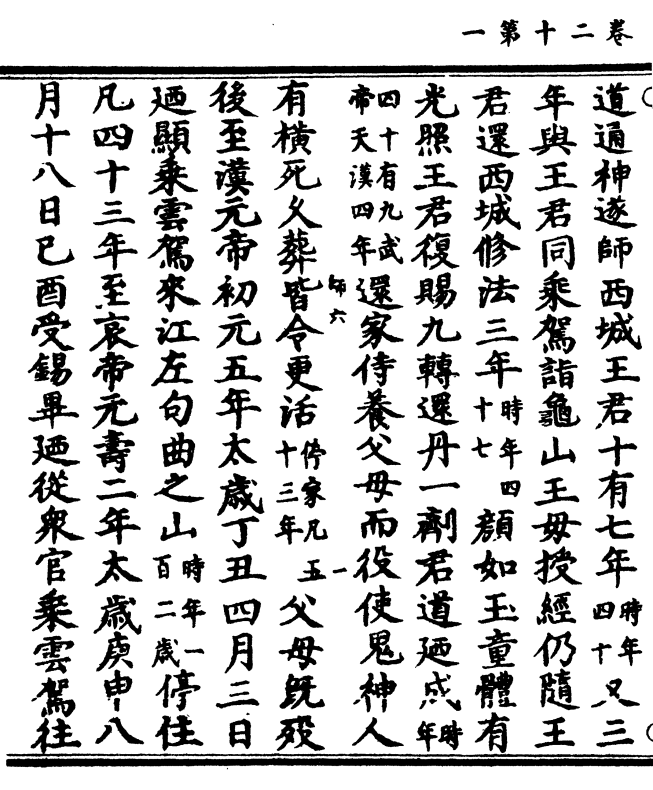 卷二十第一
道通神遂師西城王君十有七年時年四十又三
年與王君同乘駕詣龜山王母授經仍隨王
君還西城修法三年時年四十七顔如玉童體有
光照王君復賜九轉還丹一劑君道廼成時年
四十有九武帝天漢四年還家侍養父母而役使鬼神人
師六 一
有橫死久葬皆令更活停家凡五十三年父母既歿
後至漢元帝初元五年太歲丁丑四月三日
廼顯乘雲駕來江左句曲之山時年一百二歲停住
凡四十三年至哀帝元壽二年太歲庚申八
月十八日巳酉受錫畢廼從衆官乘雲駕往